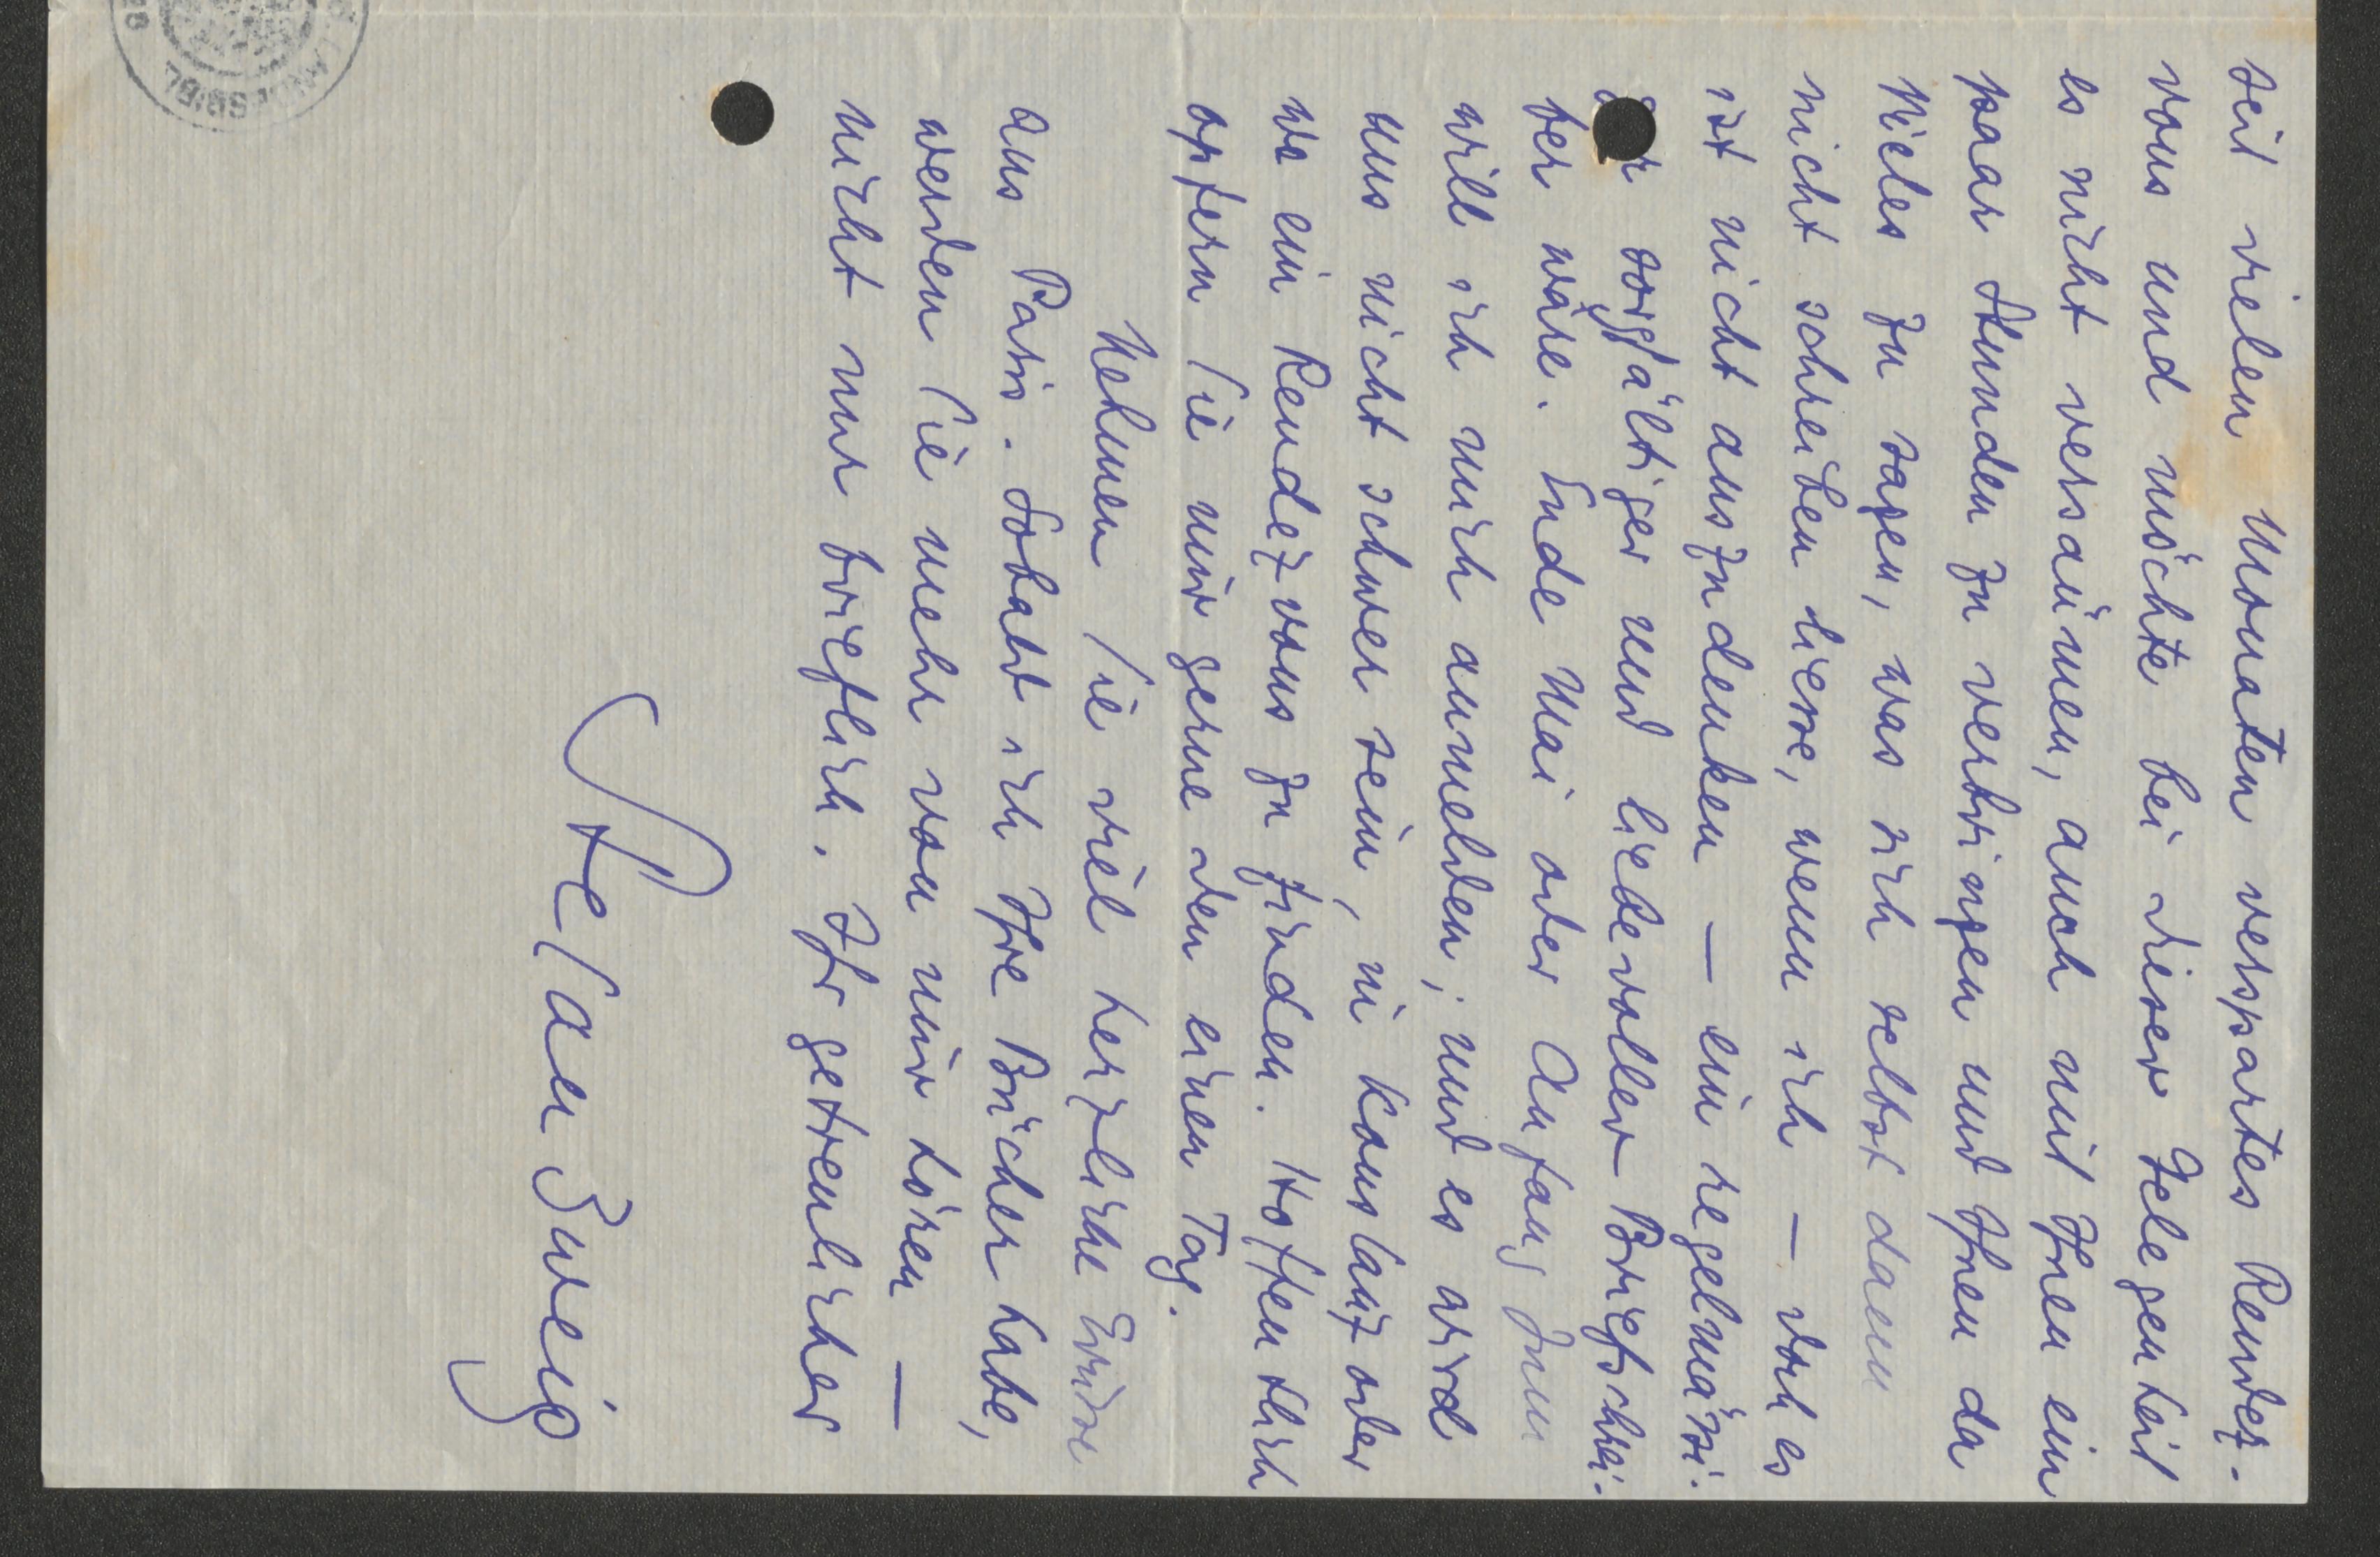 seit vielen Monaten verspartes Rendez-
vous und möchte bei dieser Gelegenheit
es nicht versäumen, auch mit Ihnen ein
paar Stunden zu verbringen und Ihnen da
Vieles zu sagen, was sich selbst dann
nicht schreiben liesse, wenn ich – doch es
ist nicht auszudenken – ein regelmässi-
ger sorgfältiger und liebevoller Briefschrei-
ber wäre. Ende Mai oder Anfang Juni
will ich mich anmelden; und es wird
uns nicht schwer sein, in Konstanz oder
wo ein Rendezvous zu finden. Hoffentlich
opfern Sie mir gerne den einen Tag.
Nehmen Sie viel herzliche Grüsse
aus Paris. Sobald ich Ihre Bücher habe,
werden Sie mehr von mir hören –
nicht nur brieflich. Ihr getreulicher
Stefan Zweig
LANDESBIBL